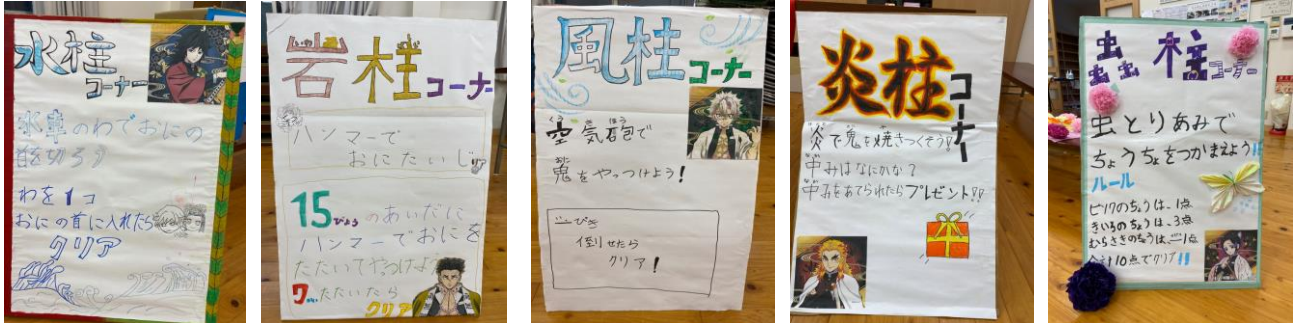 水柱
コーナー
水車のわでおにの
首を切ろう
わを1コ
おにの首に入れたら
クリア
岩柱コーナー
ハンマーで
おにたいじ
15びょうのあいだに
ハンマーでおにを
たたいてやっつけよう
たたいたら
クリア
風柱
コーナー
空気砲で
くう き ほう
鬼をやっつけよう!
おに
倒せたら
クリア!
炎柱
コーナー
炎で鬼を焼きつくそう!!
中みはなにかな?
中みをあてられたらプレゼント!!
虫柱コーナー
虫とりあみで
ちょうちょをつかまえよう!!
ルール
ピンクのちょうは、1点
きいろのちょうは、3点
むらさきのちょうは、
合計10点でクリア!!